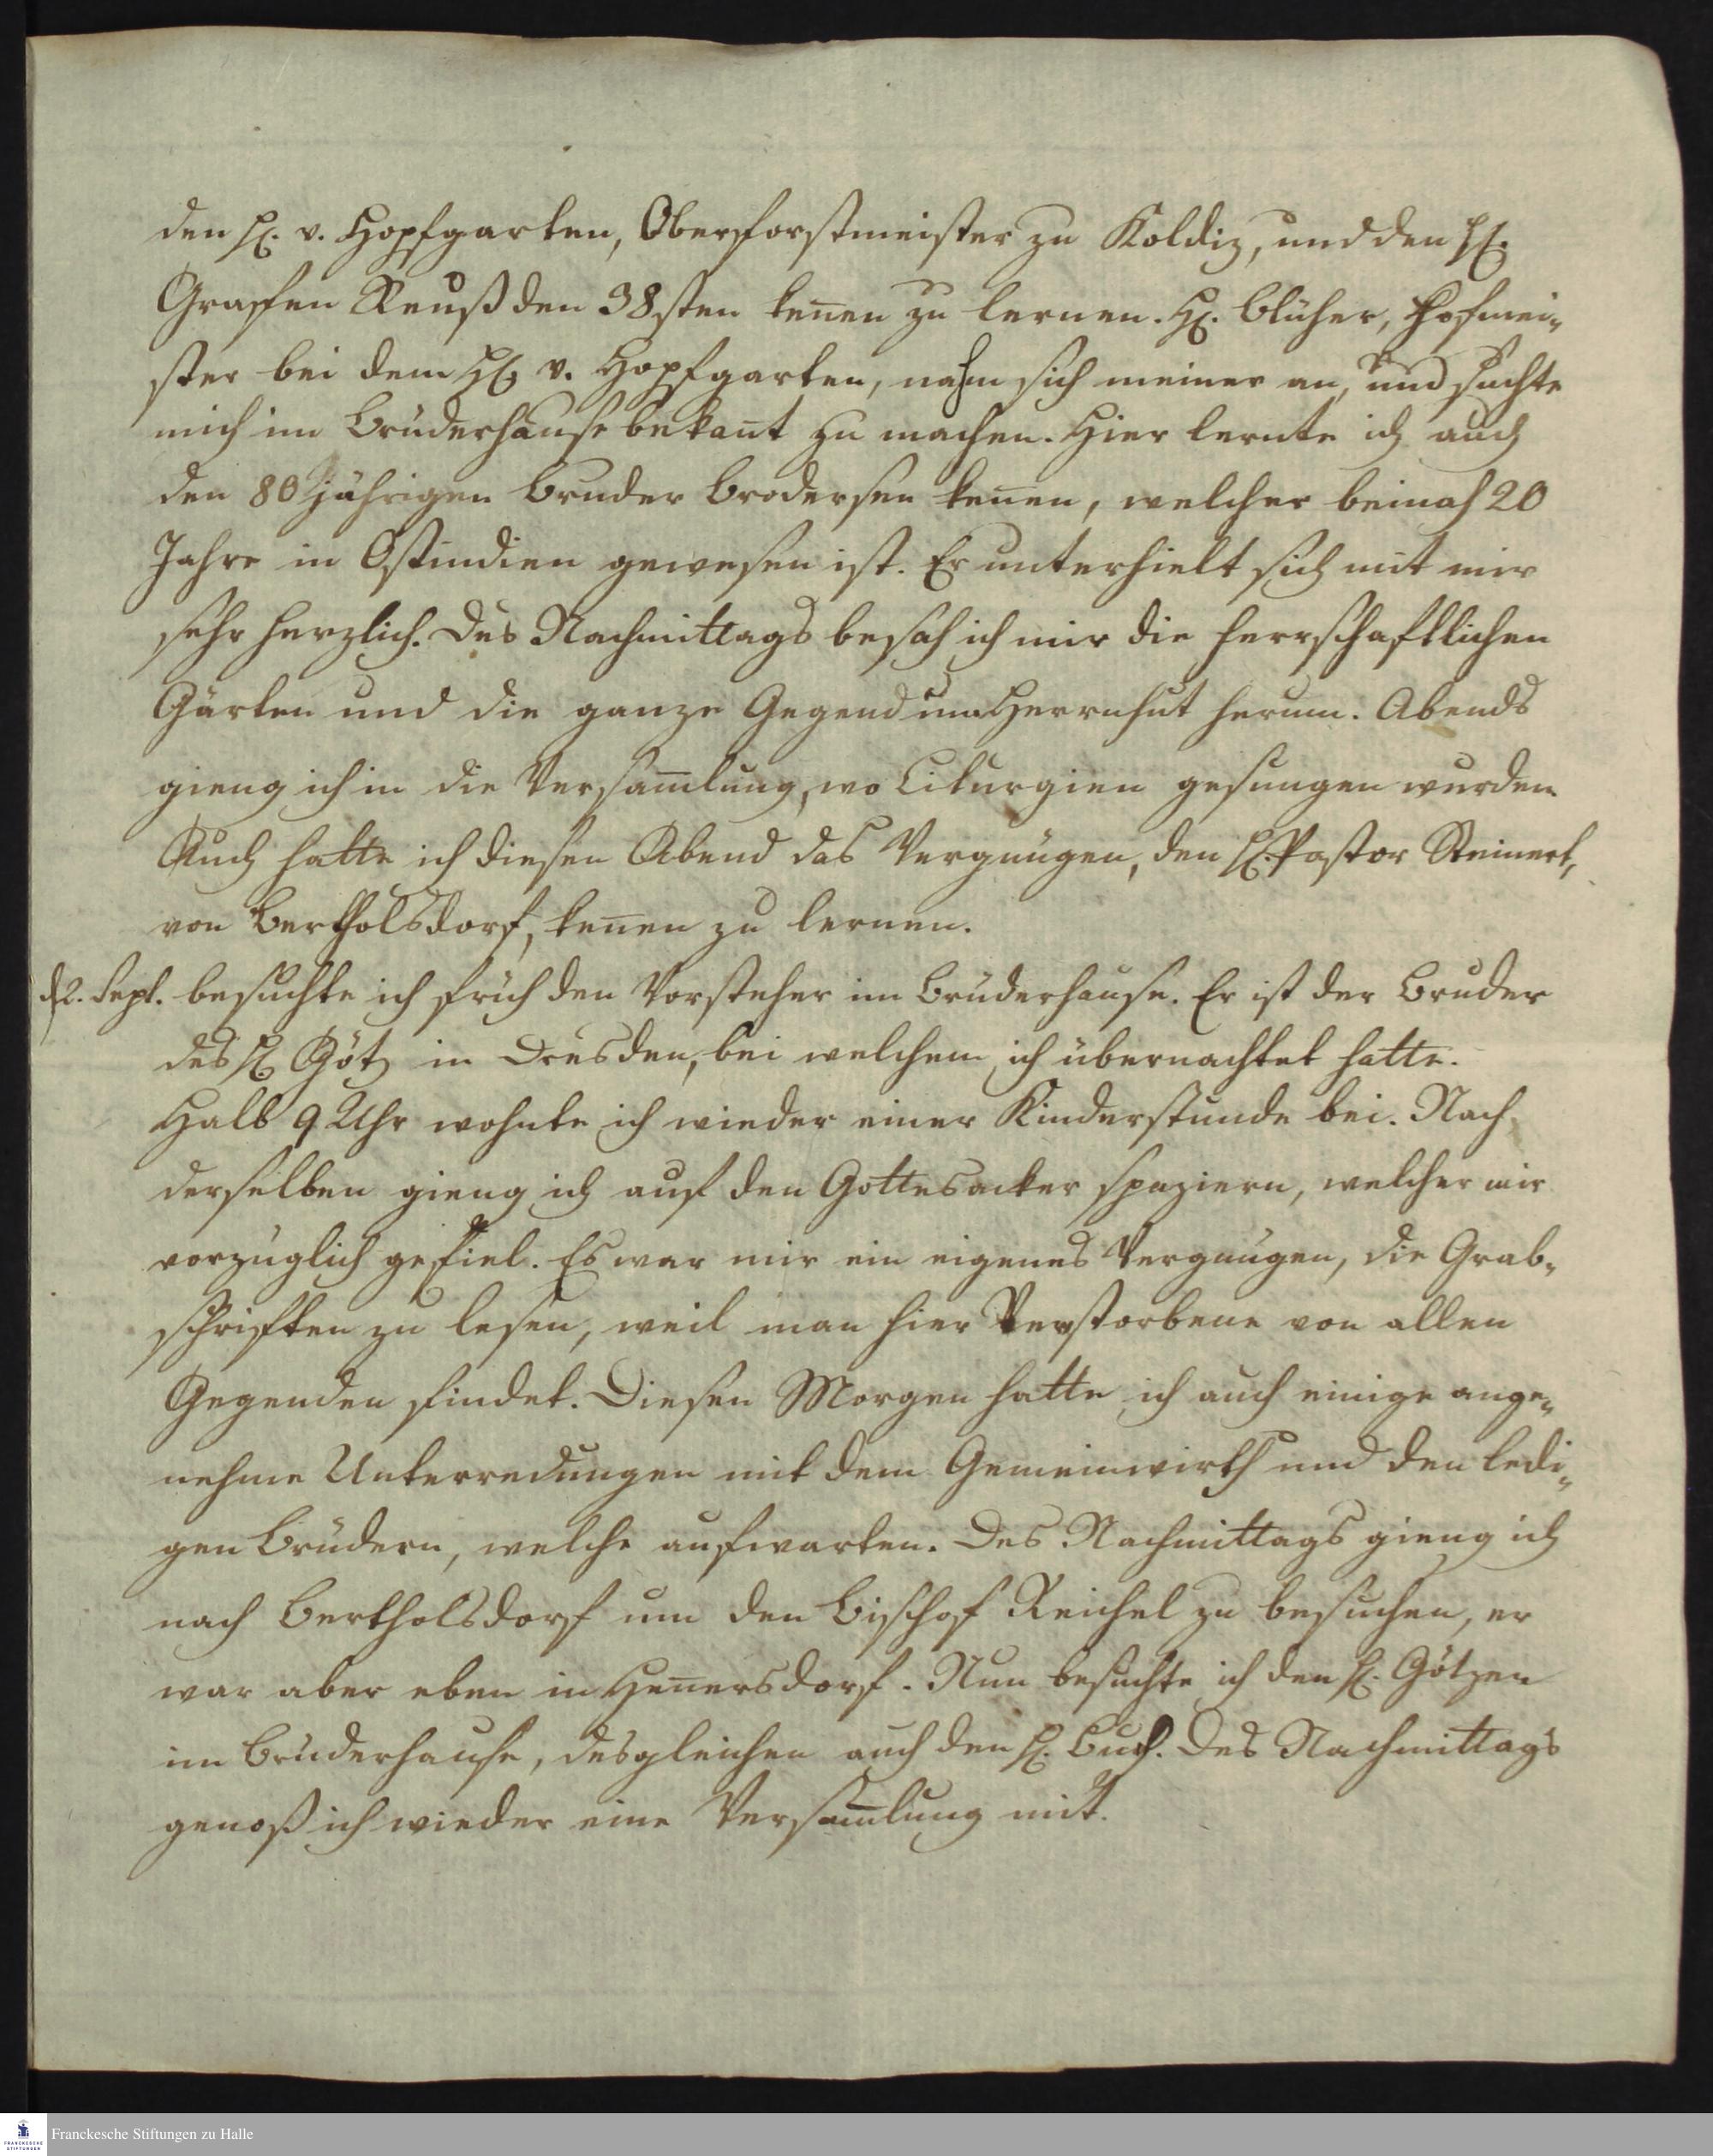 den H. v. Hopfgarten, Oberforstmeister zu Koldiz, und den H.
Grafen Reuß den 38sten keñen zu lernen. H. Blüher, Hofmei-
ster bei dem H. v. Hopfgarten, nahm sich meiner an, und suchte
mich im Brüderhause bekañt zu machen. Hier lernte ich auch
den 80jährigen Bruder Brodersen keñen, welcher beinah 20
Jahre in Ostindien gewesen ist. Er unterhielt sich mit mir
sehr herzlich. Des Nachmittags besah ich mir die herrschaftlichen
Gärten und die ganze Gegend um Herrnhut herum. Abends
gieng ich in die Versam̄lung, wo Liturgien gesungen wurden
Auch hatte ich diesen Abend das Vergnügen, den H. Pastor Steinert,
von Bertholsdorf, keñen zu lernen.
d. 2. Sept. besuchte ich früh den Vorsteher im Brüderhause. Er ist der Bruder
des H. Götz in Dresden, bei welchem ich übernachtet hatte.
Halb 9 Uhr wohnte ich wieder einer Kinderstunde bei. Nach
derselben gieng ich auf den Gottesacker spaziern, welcher mir
vorzüglich gefiel. Es war mir ein eigenes Vergnügen, die Grab-
schriften zu lesen, weil man hier Verstorbene von allen
Gegenden findet. Diesen Morgen hatte ich auch einige ange-
nehme Unterredungen mit dem Gemeinwirth und den ledi-
gen Brüdern, welche aufwarten. Des Nachmittags gieng ich
nach Bertholsdorf um den Bischof Reichel zu besuchen, er
war aber eben in Heñersdorf. Nun besuchte ich den H. Götzen
im Brüderhause, desgleichen auch den H. Buch. Des Nachmittags
genoß ich wieder eine Versam̄lung mit.
Franckesche Stiftungen zu Halle
FRANCKESCHE
STIFTUNGEN